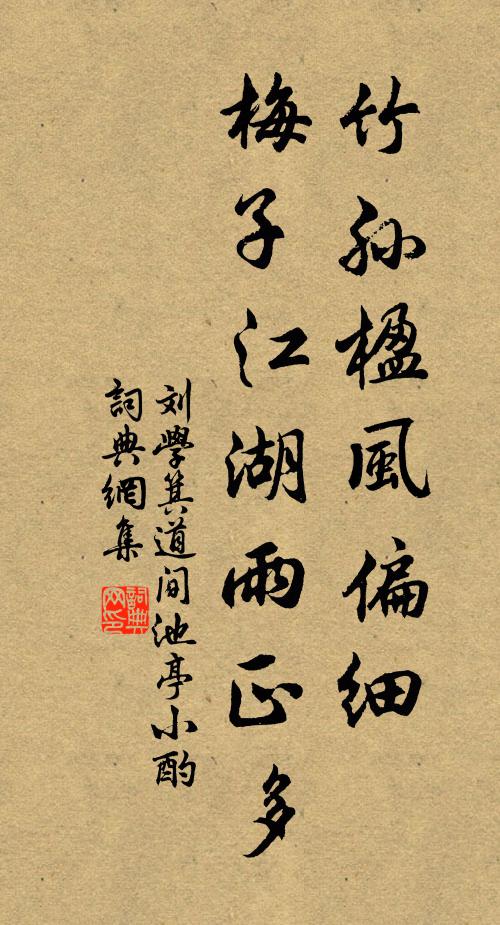 竹孙楹風偏细
梅子江湖雨正多
刘學箕道间池亭小酌
詞典網集
詞典网印